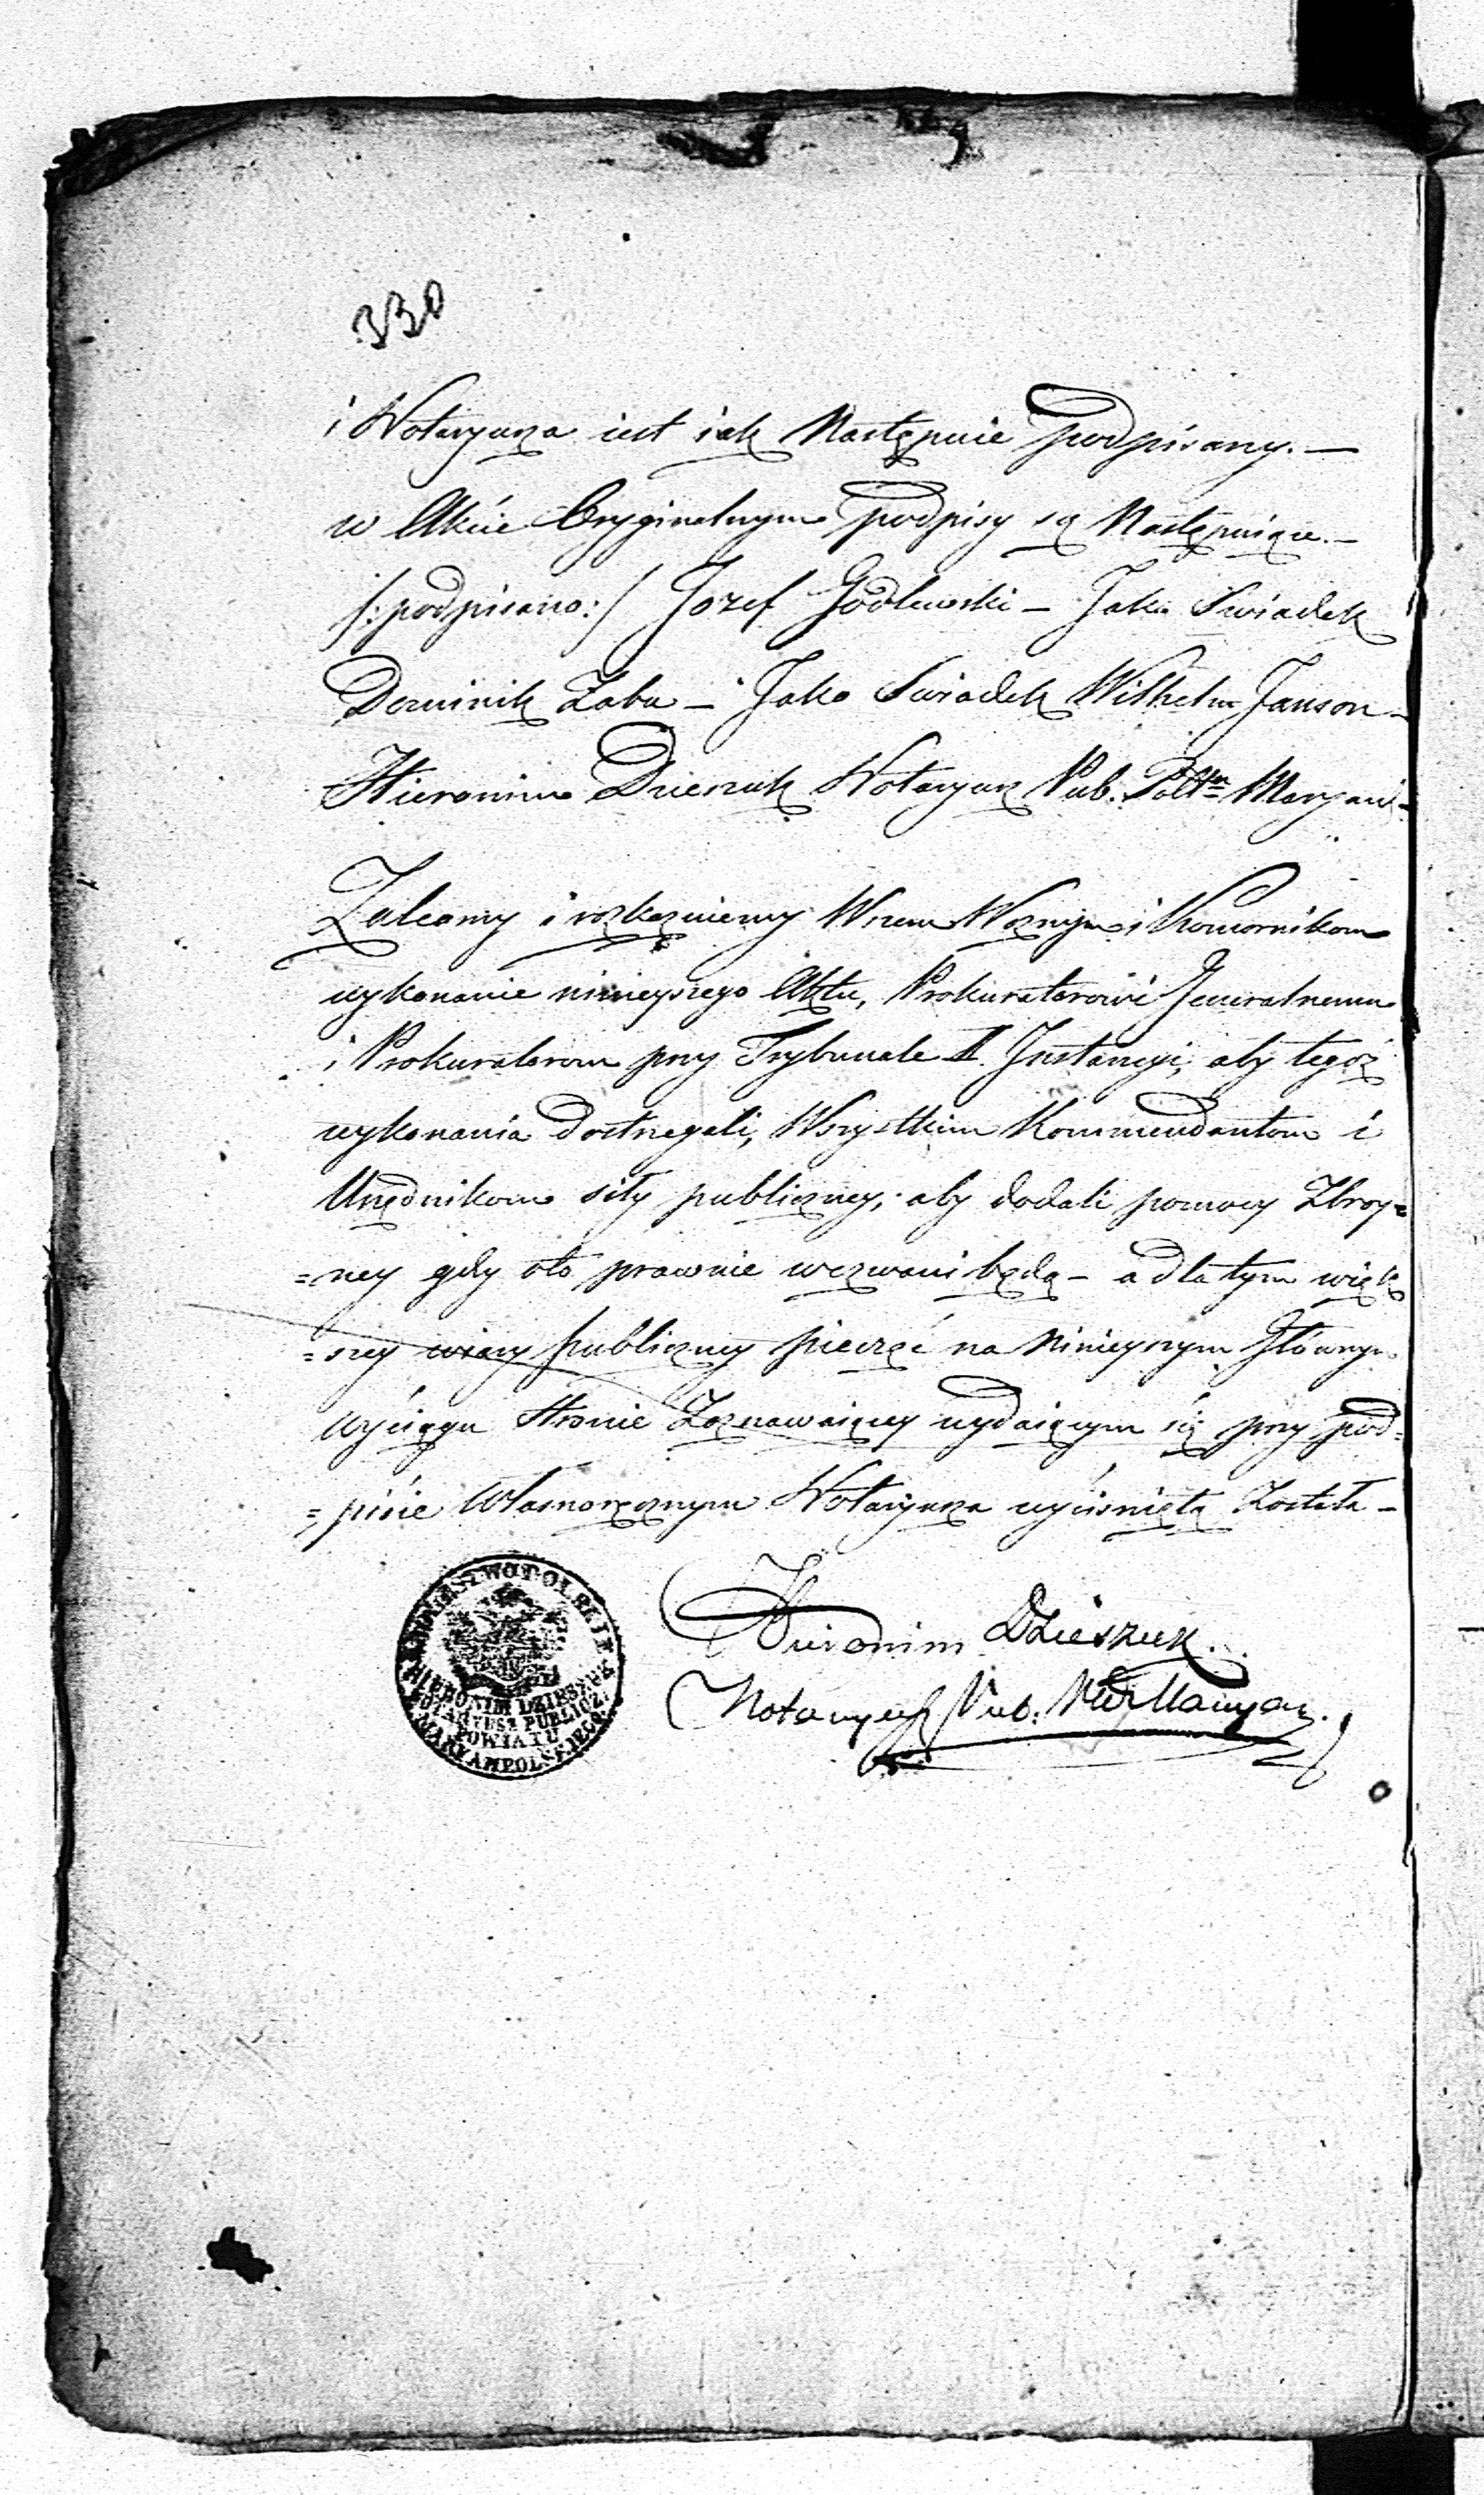 330
i Notaryusza iest iak Następuie podpisany. —
w Akcie Oryginalnym podpisy są Następuiące. —
/: podpisano :/ Jozef Godlewski — Jako Swiadek
Dominik Zaba — Jako Swiadek Wilhelm Janson —
Hieronim Dzieszuk Notaryusz Pub. Maryam:
Zalecamy i roskazuiemy Wszem Woznym i Komornikom
wykonanie ninieyszego Aktu, Prokuratorowi Jeneralnemu
i Prokuratorom przy Trybunale I. Instancyi, aby tegoż
wykonania dostrzegali, Wszystkim Kommendantom i
Urzędnikom siły publiczney, aby dodali pomocy Zbroy=
=ney gdy oto prawnie wezwani będą — a dla tym więk
=szey wiary publiczney pieczęć na ninieyszym Głównym
wyciągu Stronie Zeznawaiącey wydaiącym się przy pod=
=pisie własnoręcznym Notaryusza wyciśnięta Została —
KROLESTWO POLSKIE
HIERONIM DZIESZUK
NOTARYUSZ PUBLICZ:
POWIATU
MARYAMPOLSKIEGO
Hieronim Dzieszuk.
Notaryusz Pub. Ptu Maryam.